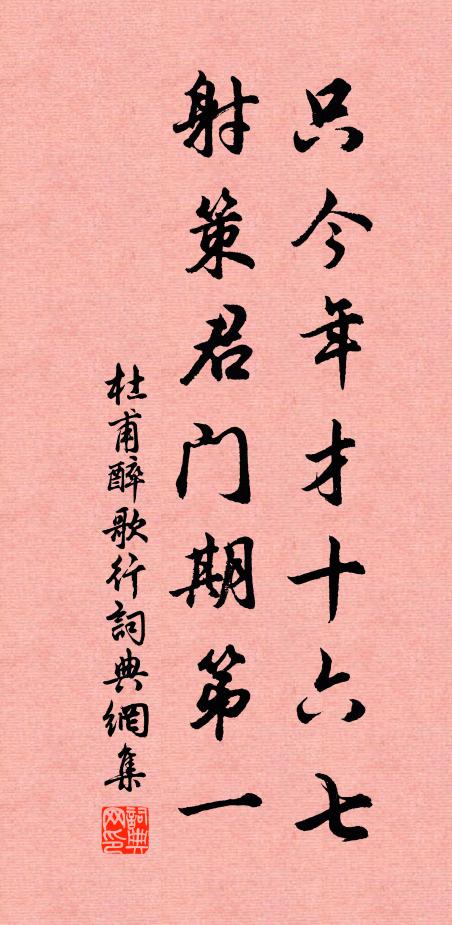 只今年才十六七
射策君门期第一
杜甫醉歌行詞典網集
詞典网印